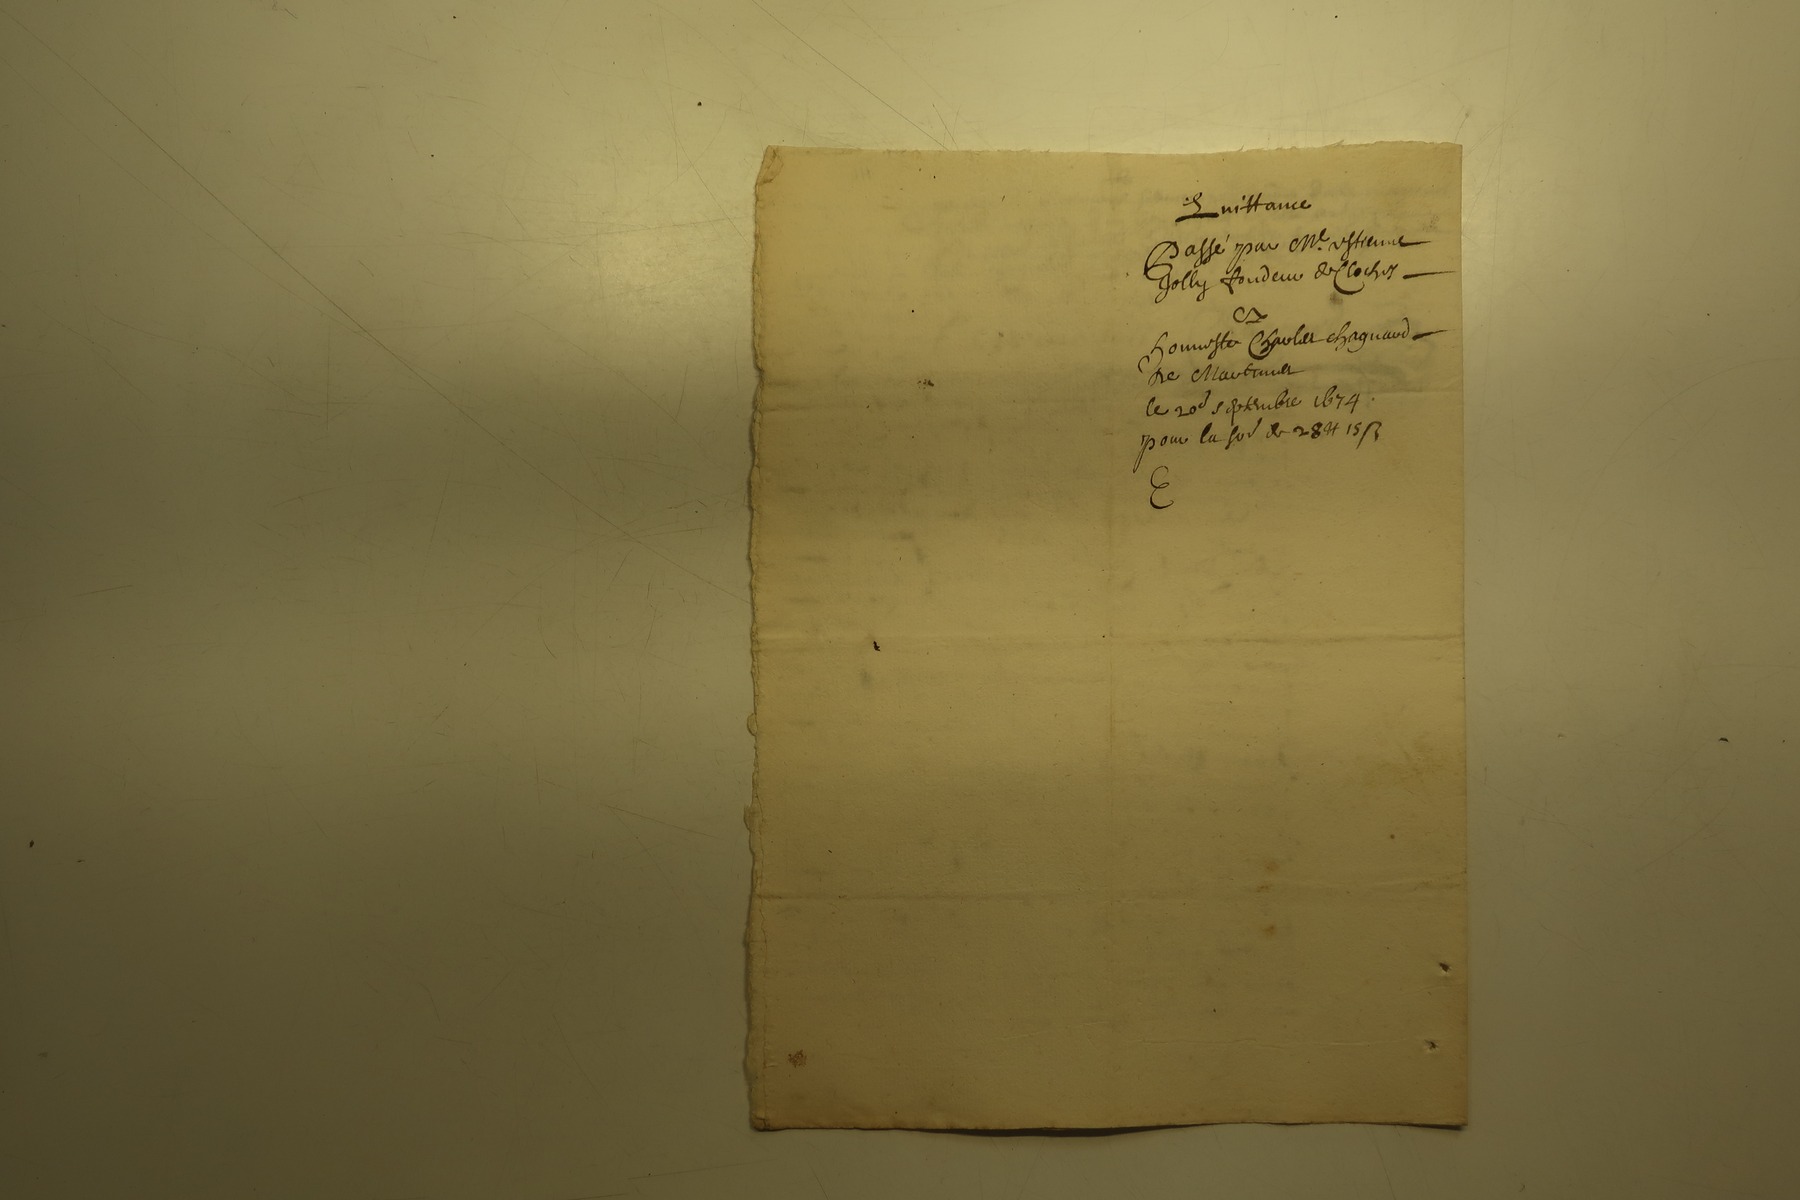 Quittance
Passé par Me. estienne
Jolly fondeur de Cloches
A
honneste Charles chagnard
de Martinet
le 20d septembre 1674.
pour la so{d} de 28tt 15ß
E